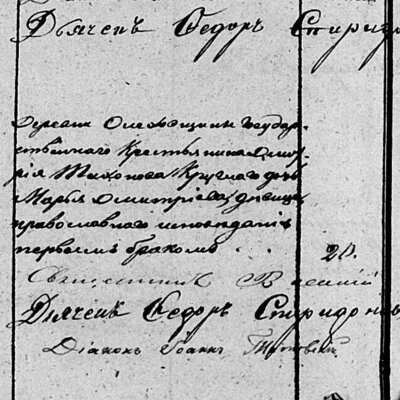 Дьячекъ Ѳедоръ Спирид
деревни Ольховщины государ-
ственнаго крестьянина Дмит-
рія Тихонова Круглаго дочь
Марья Дмитріева, девица
православнаго исповѣданія
первымъ бракомъ . . 20.
Священникъ
Дьячекъ Ѳедоръ Спиридоно
Діаконъ Іоаннъ